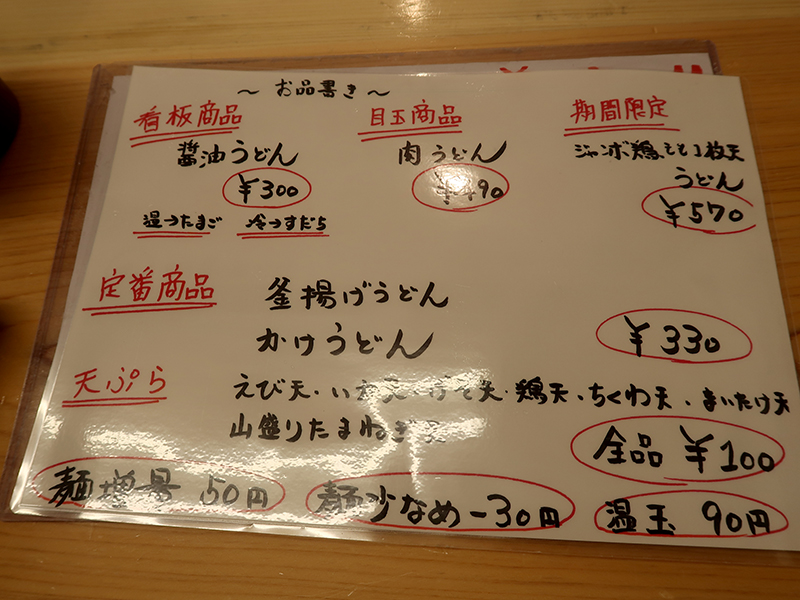 ～ お品書き ～
看板商品 目玉商品 期間限定
醤油うどん 肉うどん ジャンボ鶏もも1枚天
うどん
¥300 ¥490 ¥570
温→たまご 冷→すだち
定番商品 釜揚げうどん
かけうどん ¥330
天ぷら えび天・いか天・ 鶏天・ちくわ天・まいたけ天
山盛りたまねぎ天
全品 ¥100
麺増量 50円 麺少なめ－30円 温玉 90円